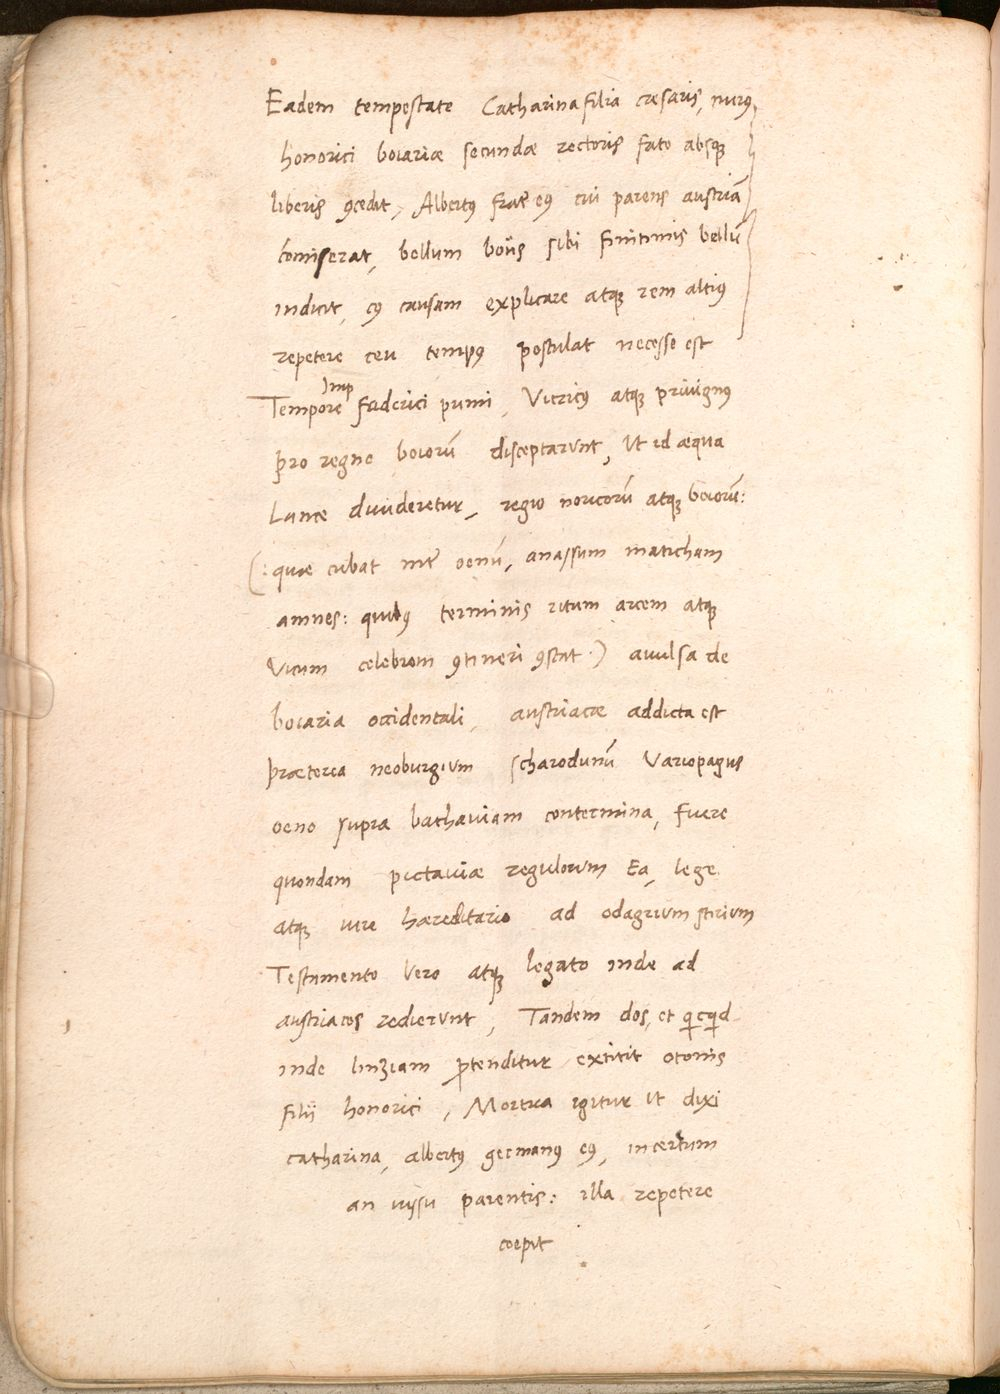 Eadem tempestate Catharina filia cæsaris, nurꝯ
honorici boiariæ secundæ rectoris fato absqꝫ
liberis ꝯcedit, Albertꝯ frat̃ eꝯ cui parens austriã
cõmiserat, bellum boiis sibi finitimis bellũ
indicit, cꝯ causam explicare atqꝫ rem altiꝯ
repetere ceu tempꝯ postulat necesse est
Imp
Tempore fæderici primi, Vitricꝯ atqꝫ priuignꝯ
pro regno boiorũ disceptarunt, Ut id æqua
Lance diuideretur, regio noricorũ atqꝫ boiorũ:
(: quæ cubat int̃ oenũ, anassum maticham
amnes: quibꝯ terminis ritum arcem atqꝫ
Vicum celebrem ꝯtineri ꝯstat.) auulsa de
boiaria occidentali, austriacæ addicta est
præterea neoburgium scharodunũ Variopagus
oeno supra bathauiam contermina, fuere
quondam pictauiæ regulorum Ea, lege
atqꝫ iure hæreditario ad odagrium stirium
Testamento Vero atqꝫ legato inde ad
austriacos redierunt, Tandem dos, et qicqid
inde linziam ꝓtenditur extitit otonis
filii honorici, Mortua igitur ut dixi
catharina, albertꝯ germanꝯ eꝯ, incertum
an iussu parentis: illa repetere
coepit